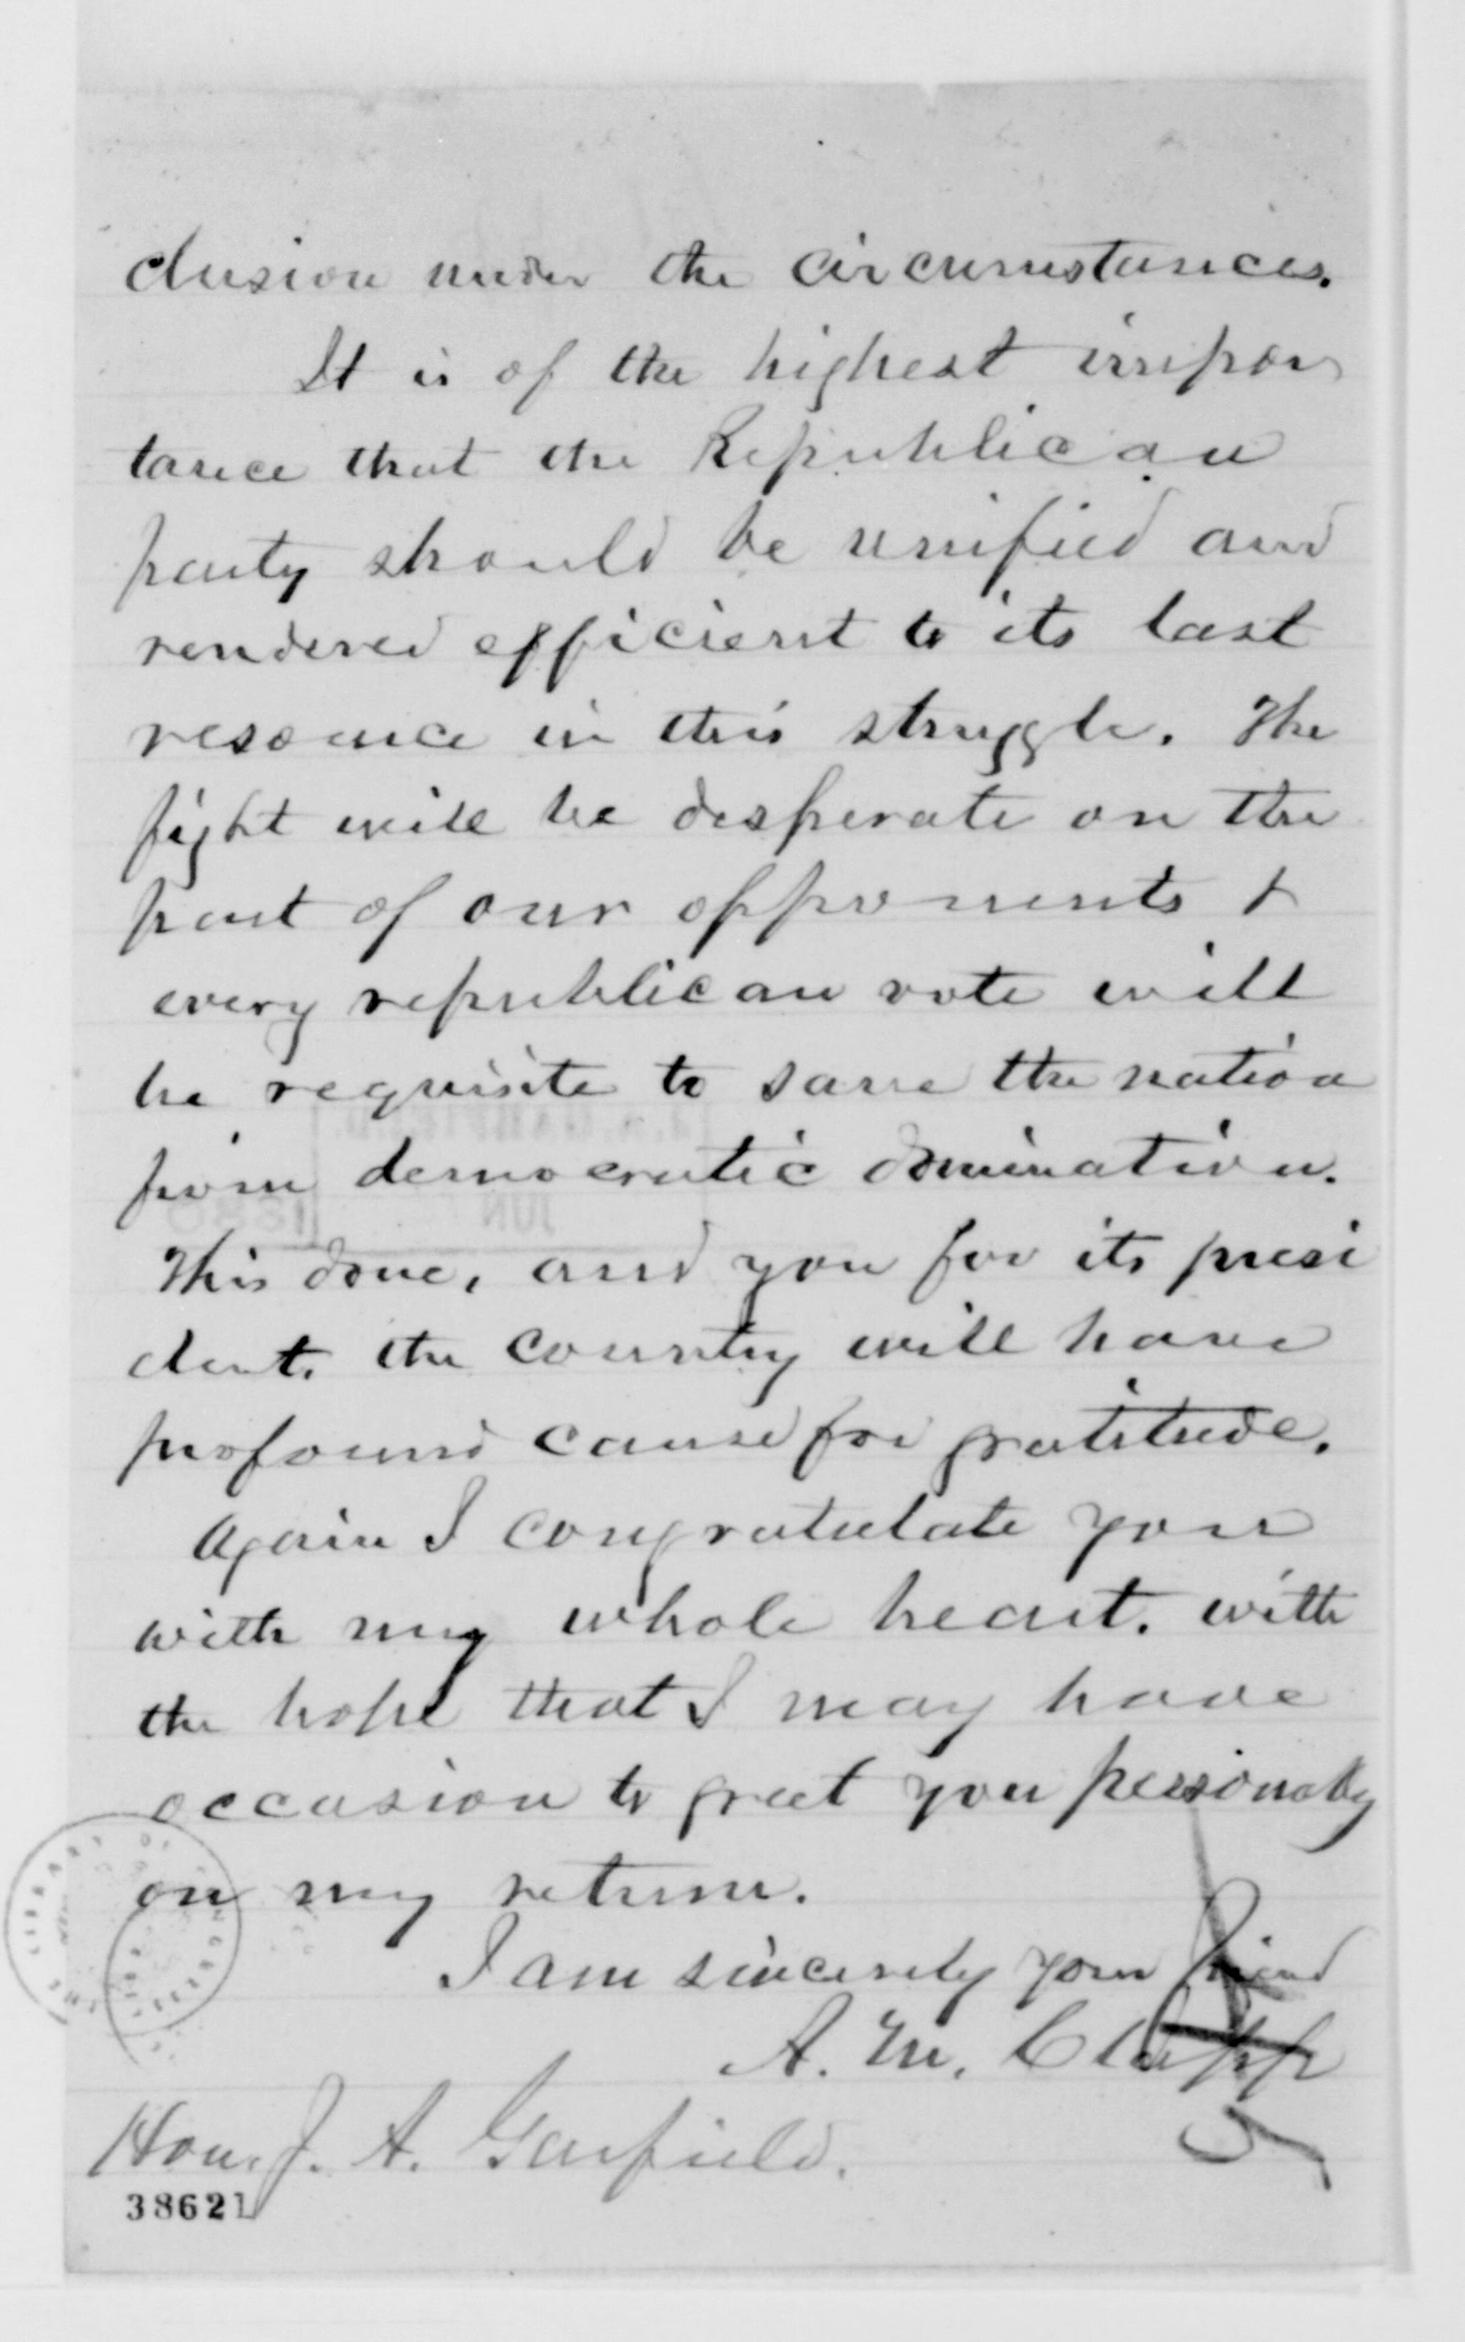 clusion under the circumstances.
It is of the highest impor
tance that the Republican
party should be unified and
rendered efficient to its last
resource in this struggle. The
fight will be desperate on the
part of our opponents &
every republican vote will
be requisite to save the nation
from democratic domination.
This done, and you for its presi
dent, the country will have
profound cause for gratitude.
Again I congratulate you
with my whole heart, with
the hope that I may have
occasion to greet you personally
on my return.
I am sincerely your friend
A. M. Clapp
Hon. J. A. Garfield.
38621